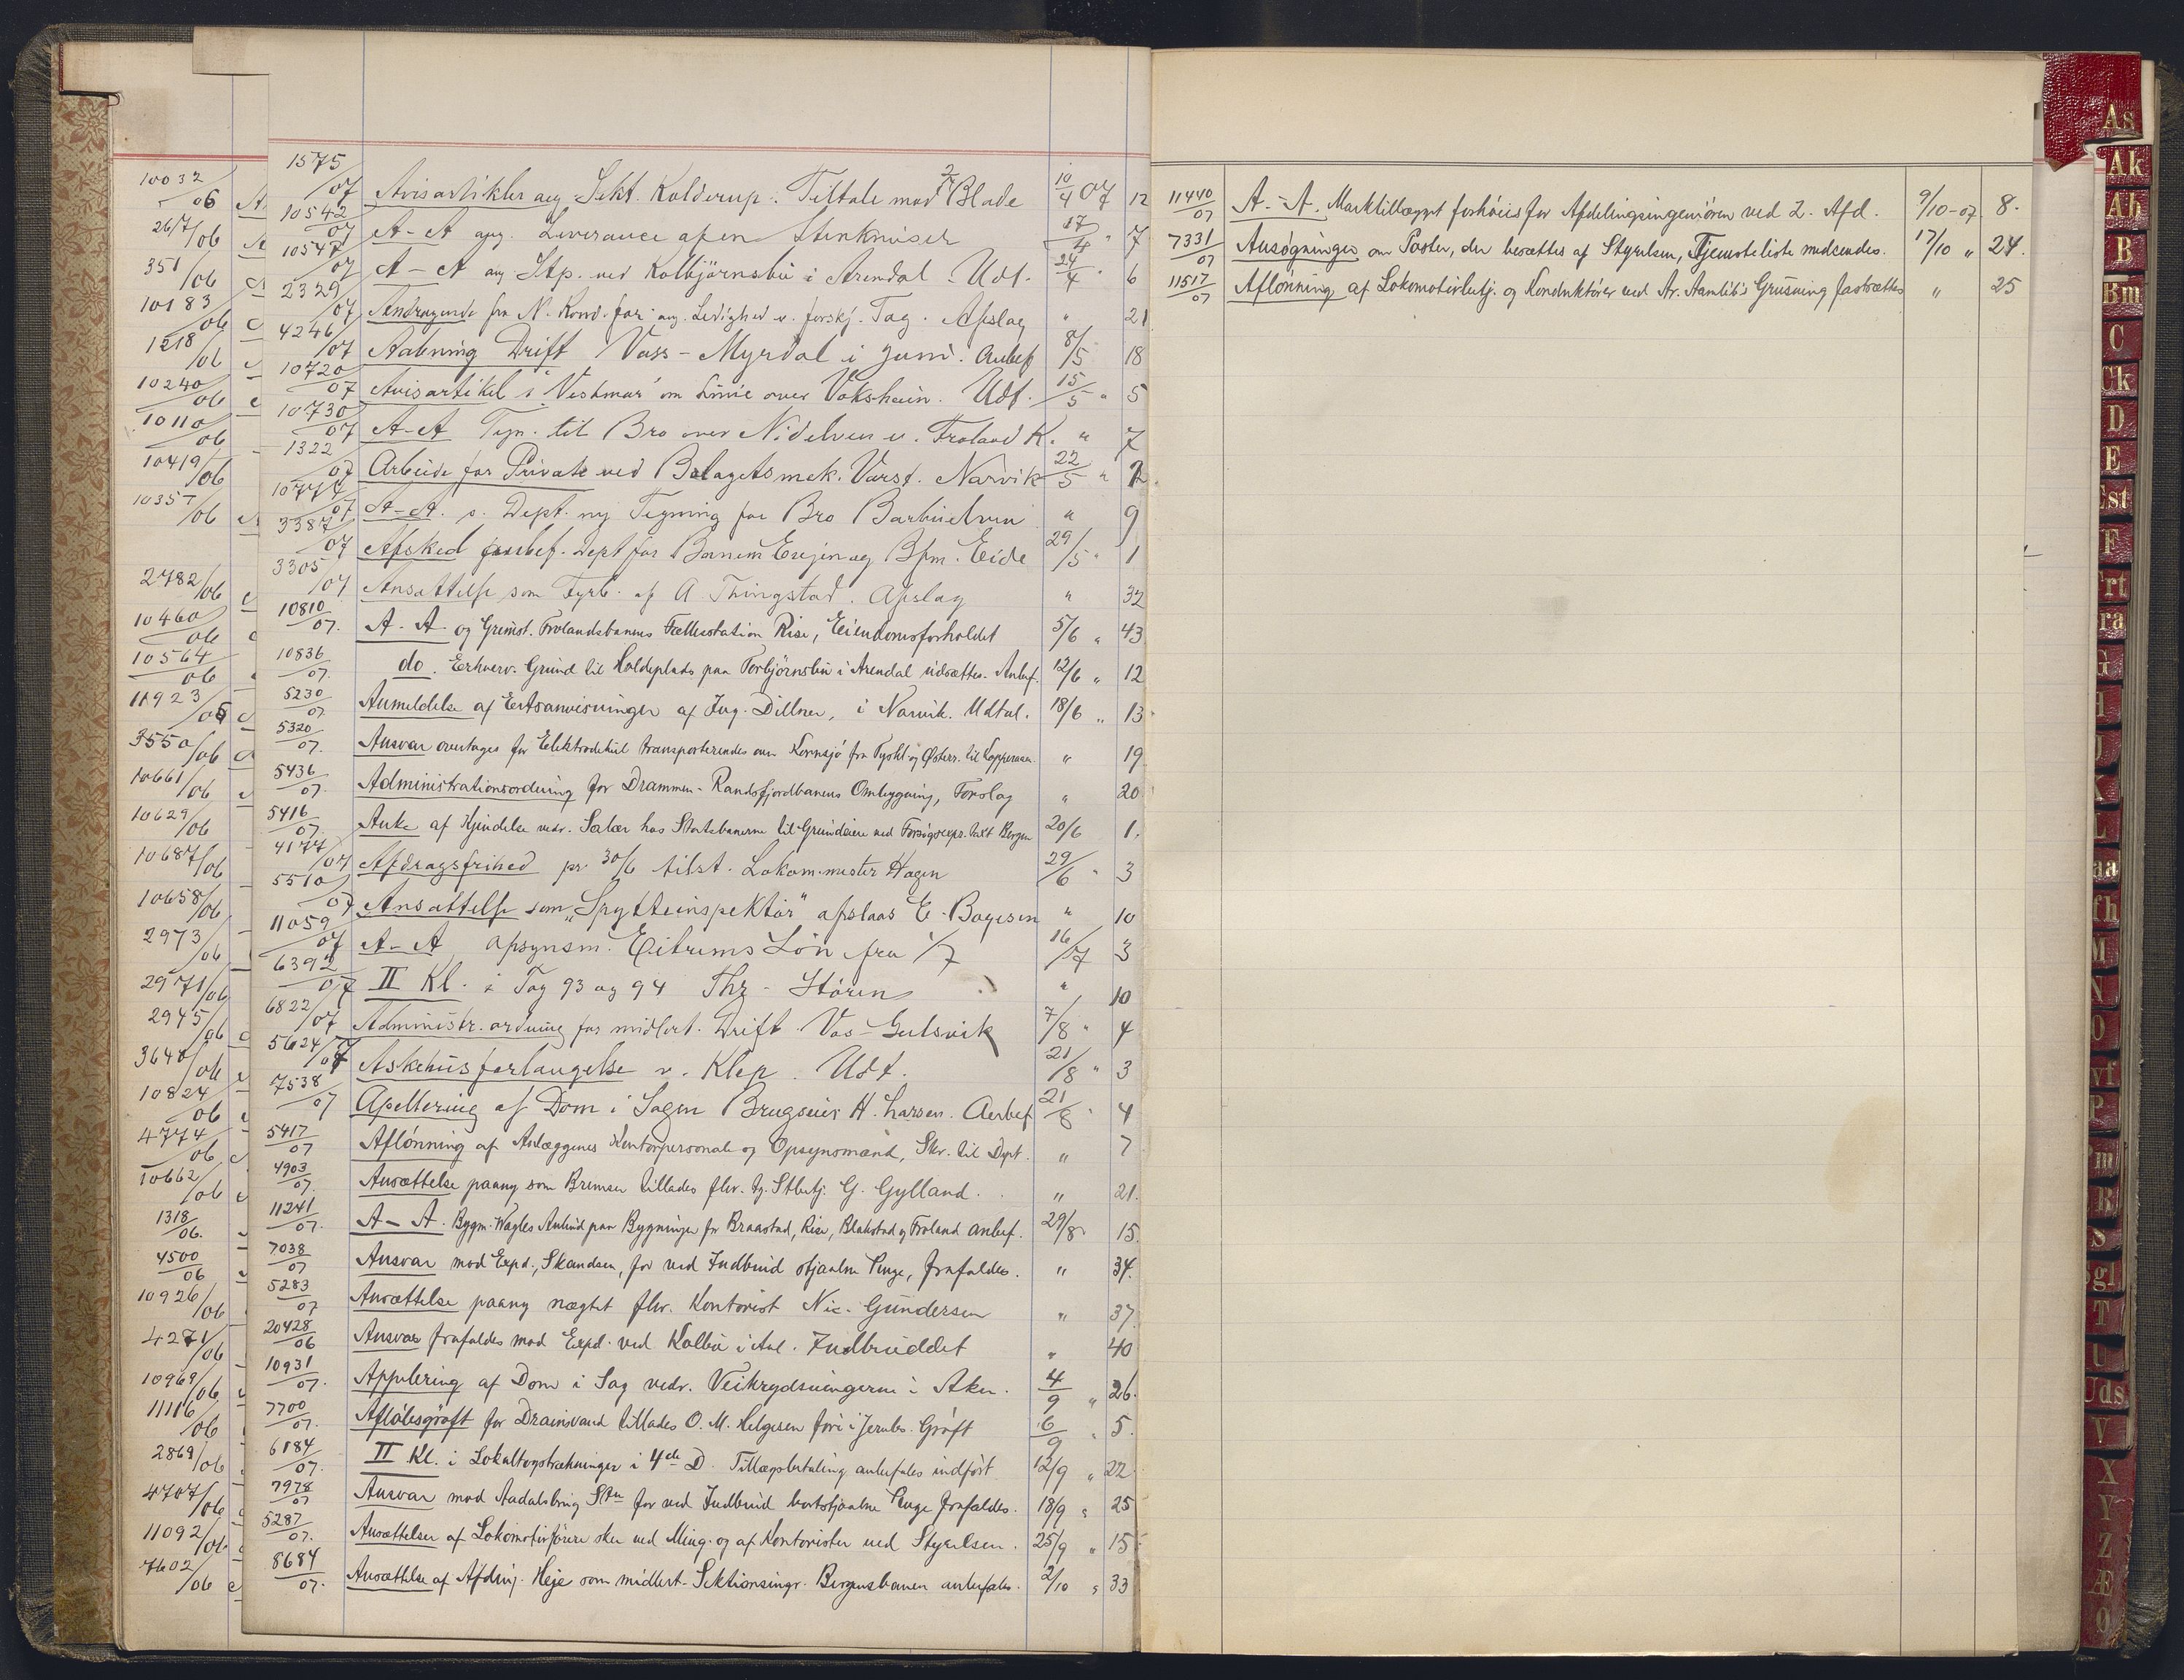 1575/07 Avisartikler ang. Sekt. Kolderup. Tiltale mod 2 Blade 10/4 07 12
10542/07 A-A ang. Leverance af en Stenknuser 17/4 " 7
10547/07 A-A ang. Stp. ved Kolbjörnsbu i Arendal. Udt. 24/4 " 6
2329/07 Andragende fra N. Kond. for. ang. Ledighed v. forskj. Tog. Afslag " 21
4246/07 Aabning Drift Voss-Myrdal i Juni. Anbef 8/5 18
10720/07 Avisartikel i "Vestmar" om Linie over Voksheim. Udt. 15/5 " 5
10730/07 A-A Tegn. til Bro over Nidelven v. Froland K. " 7
1322/07 Arbeide for Private ved Bolagets mek. Værst. Narvik 22/5 " 12
10774/07 A-A. s. Dept. ny Tegning for Bro Barbuelven " 9
3387/07 Afsked Dept for Eide 29/5 " 1
3305/07 Ansættelse som Fyrb. af A Thingstad. Afslag " 32
10810/07. A-A. og Grimst. Frolandsbanens Fællesstation Rise, Eiendomsforholdet 5/6 " 43
10836/07. do. Erhverv. Grund til Holdeplads paa Torbjörnsbu i Arendal udsættes. Anbef. 12/6 " 12
5230/07. Anmeldelse af Ertsanvisninger af Ing. Dillner, i Narvik. Udtal. 18/6 " 13
5320/07. Ansvar overtages for Elektrodekul transporterendes over Kornsjö fra Tyskl. og Østerr. til Kopperaaen " 19
5436/07. Administrationsordning for Drammen-Randsfjordbanens Ombygning, Forslag " 20
5416/07. Anke af Kjendelse vedr. Salær hos Statsbanerne til Grundeiere ved Bergen 20/6 1.
4177/07 Afdragsfrihed pr. 30/6 tilst. Lokom.mester Hagen 29/6 " 3
5510/07 Ansættelse som "Spytteinspektør" afslaas E. Bogesen " 10
11059/07 A-A opsynsm. Eitrems Lön fra 1/7 16/7 3
6392/07 II Kl. i Tog 93 og 94 Thr - Stören " 10
6822/07 Administr. ordning for midlert. Drift. Vos-Gulsvik 7/8 " 4
5624/07 Askehusforlængelse v. Klep. Udt. 21/8 " 3
7538/07 Apellering af Dom i Sagen Brugseier H. Larsen. Anbef 21/8 " 4
5417/07 Aflönning af Anlæggenes Kontorpersonale og Opsynsmænd, Skr. til Dept. " 7
4903/07. Ansættelse paany som Bremser tillades fhv. tg. Stbetj. G. Gylland. " 21.
11241/07. A-A. Bygm. Wagles Anbud paa Bygninger for Braastad, Rise, Blakstad og Froland anbef. 29/8 15.
7038/07 Ansvar mod Expd., Skandsen, for ved Indbrud stjaalne Penge, frafaldes. " 34.
5283/07 Ansættelse paany nægtet fhv. Kontorist Nic. Gundersen " 37.
20428/06 Ansvar frafaldes mod Expd. ved Kolbu i Anl. Indbruddet " 40
10931/07. Appelering af Dom i Sag vedr. Veikrydsningerne i Aker. 4/9 " 26.
7700/07. Aflöbsgröft for Drainsvand tillades O. M. Helgesen före i Jernbs. Gröft 6/9 " 5.
6184/07. II Kl. i Lokaltogstrækninger i 4de D. Tillægsbetaling anbefales indfört 12/9 " 22
7978/07 Ansvar mod Aadalsbrug Stn for ved Indbrud bortstjaalne Penge frafaldes. 18/9 " 25
5287/07. Ansættelser af Lokomotivförere sker ved Ming. og af Kontorister ved Styrelsen. 25/9 " 15
8684/07. Ansættelse af Afding. Heje som midlert. Sektionsingr. Bergensbanen anbefales. 2/10 " 33
11440/07 A.-A. Marktillægget forhöies for Afdelingsingeniören ved 2. Afd. 9/10-07 8.
7331/07 Ansøgninger om Poster, der besættes af Styrelsen, Tjenesteliste medsendes. 17/10 " 24.
11517/07 Aflönning af Lokomotivbetj. og Konduktörer ved Ar. Aamlib's Grusning fastsættes " 25
10032/06
267/06
351/06
10183/06
1218/06
10240/06
10110/06
10419/06
10357/06
2782/06
10460/06
10564/06
11923/05
3550/06
10661/06
10629/06
10687/06
10658/06
2973/06
2971/06
2945/06
3640/06
10824/06
4774/06
10662/06
1318/06.
4500/06
10926/06
4271/06
10969/06
11116/06
2869/06
4707/06
11092/06
7602/06
As
Ak
Ab
B
Bm
C
Ck
D
E
Est
F
Frt
G
H
J
K
L
M
N
O
P
R
S
T
U
Uds
V
X
Y
Z
Æ
Ø